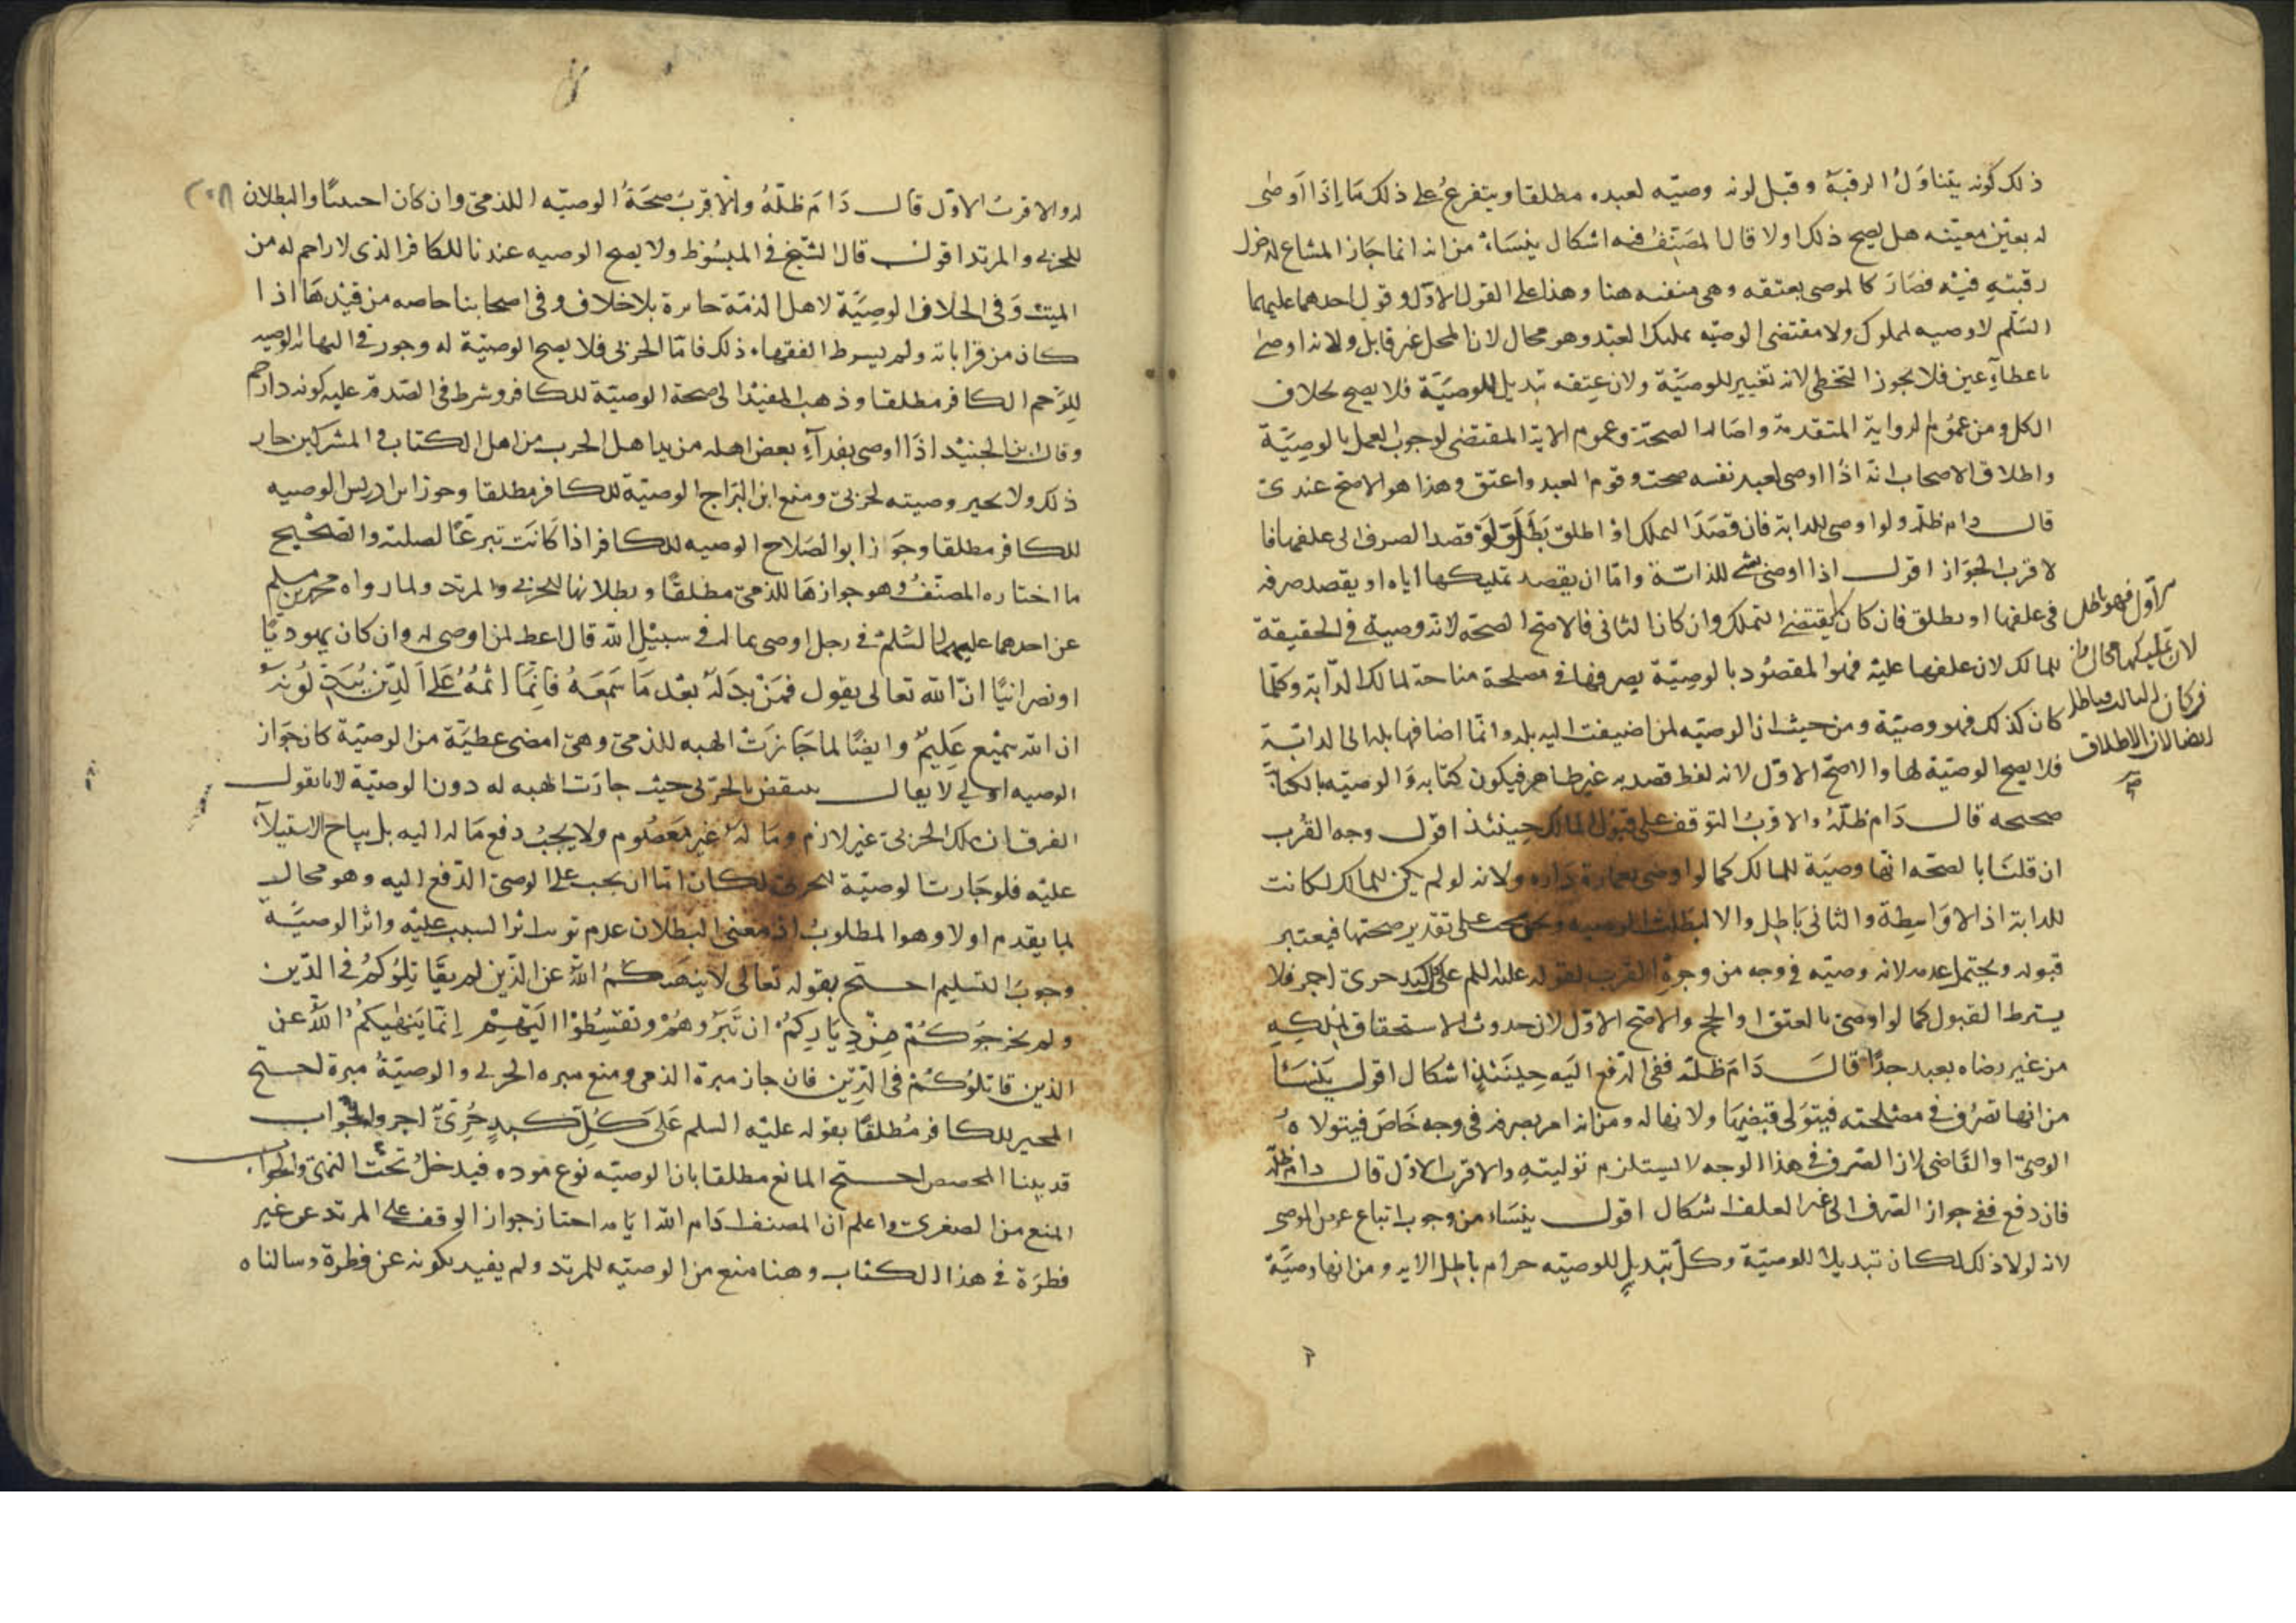 ذلك كونه يتناول الرقبة وقبل لونه وصيته لعبده مطلقا ويتفرع على ذلك ما اذا اوصى
له بعين معينه هل يصح ذلك اولا قال المصنف فيه اشكال ينشاء من انه انما جاز المشاع لدخول
رقبته فيه فصار كالموصى بعتقه وهى منفيه هنا وهذا على القول الاول وقول احدهما عليهما
السلم لا وصيه لمملوك ولا مقتضى الوصيه تمليك العبد وهو محال لان المحل غير قابل ولانه اوصى
باعطاء عين فلا يجوز التخطى لانه تغيير للوصية ولان عتقه تبديل للوصية فلا يصح بخلاف
الكل ومن عموم الرواية المتقدمة واصالة الصحة وعموم الاية المقتضى لوجوب العمل بالوصية
واطلاق الاصحاب انه اذا اوصى لعبد نفسه صحت وقوم العبد واعتق وهذا هو الاصح عندى
قال دام ظله ولو اوصى للدابة فان قصد التملك او اطلق بطل ولو قصد الصرف الى علفها فا
لاقرب الجواز اقول اذا اوصى بشى للدابة واما ان يقصد تمليكها اياه او يقصد صرفه
فى علفها او يطلق فان كان يقتضى التملك وان كان الثانى فالاصح الصحة لانه وصية فى الحقيقة
للمالك لان علفها عليه فهو المقصود بالوصية يصرفها فى مصلحة مناحة لمالك الدابة وكلما
كان كذلك فهو وصية ومن حيث ان الوصيه لمن اضيفت اليه بله وانما اضافها بله الى الدابة
فلا يصح الوصية لها والاصح الاول لانه لفظ قصد به غير ظاهر فيكون كتابه والوصيه بالكتابة
صحيحه قال دام ظله والاقرب التوقف على قبول المالك حينئذ اقول وجه القرب
ان قلنا بالصحه انها وصية للمالك كما لو اوصى بعمارة داره ولانه لو لم يكن للمالك لكانت
للدابة اذ لا واسطة والثانى باطل والا لبطلت الوصيه ونحن نبحث على تقدير صحتها فيعتبر
قبوله ويحتمل عدمه لانه وصيه فى وجه من وجوه القرب لقوله عليه السلم على كل كبد حرى اجر فلا
يشترط القبول كما لو اوصى بالعتق او الحج والاصح الاول لان حدوث الاستحقاق لملكه
من غير رضاه بعيد جدا قال دام ظله ففى الدفع اليه حينئذ اشكال اقول ينشأ
من انها تصرف فى مصلحته فيتولى قبضها ولانها له ومن انه امر بصرفه فى وجه خاص فيتولاه
الوصى او القاضى لان الصرف فى هذا الوجه لا يستلزم توليته والاقرب الاول قال دام ظله
فان دفع ففى جواز الصرف الى غير العلف اشكال اقول ينشاء من وجوب اتباع غرض الموصى
لانه لولا ذلك لكان تبديلا للوصية وكل تبديل للوصيه حرام باطل الايه ومن انها وصية
الاول فهو باطل
لان تمليكها محال وان
كان الثالث فباطل
ايضا لان الاطلاق
صح
له والاقرب الاول قال دام ظله والاقرب صحة الوصيه للذمى وان كان اجنبيا والبطلان
للحربى والمرتد اقول قال الشيخ فى المبسوط ولا يصح الوصيه عندنا للكافر الذى لا رحم له من
الميت وفى الخلاف الوصية لاهل الذمة جايزة بلا خلاف وفى اصحابنا خاصه من قيدها اذا
كان من قراباته ولم يشرط الفقهاء ذلك فاما الحربى فلا يصح الوصية له وجوز فى النهاية الوصيه
للرحم الكافر مطلقا وذهب المفيد الى صحة الوصية للكافر وشرط فى الصدقة عليه كونه ذا رحم
وقال ابن الجنيد اذا اوصى بفداء بعض اهله من يد اهل الحرب من اهل الكتاب والمشركين جاز
ذلك ولا يجيز وصيته لحربى ومنع ابن البراج الوصية للكافر مطلقا وجوز ابن ادريس الوصيه
للكافر مطلقا وجوز ابو الصلاح الوصيه للكافر اذا كانت تبرعا لصلته والصحيح
ما اختاره المصنف وهو جوازها للذمى مطلقا وبطلانها للحربى والمرتد ولما رواه محمد بن مسلم
عن احدهما عليهما السلم فى رجل اوصى بماله فى سبيل الله قال اعط لمن اوصى له وان كان يهوديا
او نصرانيا ان الله تعالى يقول فمن بدله بعد ما سمعه فانما اثمه على الذين يبدلونه
ان الله سميع عليم وايضا لما جازت الهبه للذمى وهى امضى عطية من الوصية كان جواز
الوصيه اولى لا يقال ينتقض بالحربى حيث جازت الهبه له دون الوصية لانا نقول
الفرق ان ملك الحربى غير لازم وماله غير معصوم ولا يجب دفع ماله اليه بل يباح الاستيلاء
عليه فلو جازت الوصية للحربى لكان اما ان يجب على الوصى الدفع اليه وهو محال
لما يقدم اولا وهو المطلوب اذ معنى البطلان عدم ترتب اثر السبب عليه واثر الوصية
وجوب التسليم احتج بقوله تعالى لا ينهيكم الله عن الذين لم يقاتلوكم فى الدين
ولم يخرجوكم من دياركم ان تبروهم وتقسطوا اليهم انما ينهيكم الله عن
الذين قاتلوكم فى الدين فان جاز مبرة الذمى ومنع مبره الحربى والوصية مبرة احتج
المجيز للكافر مطلقا بقوله عليه السلم على كل كبد حرى اجر والجواب
قد بينا المخصص احتج المانع مطلقا بان الوصيه نوع موده فيدخل تحت النهى والجواب
المنع من الصغرى واعلم ان المصنف ادام الله ايامه اختار جواز الوقف على المرتد عن غير
فطرة فى هذا الكتاب وهنا منع من الوصيه للمرتد ولم يقيد بكونه عن فطرة وسالناه